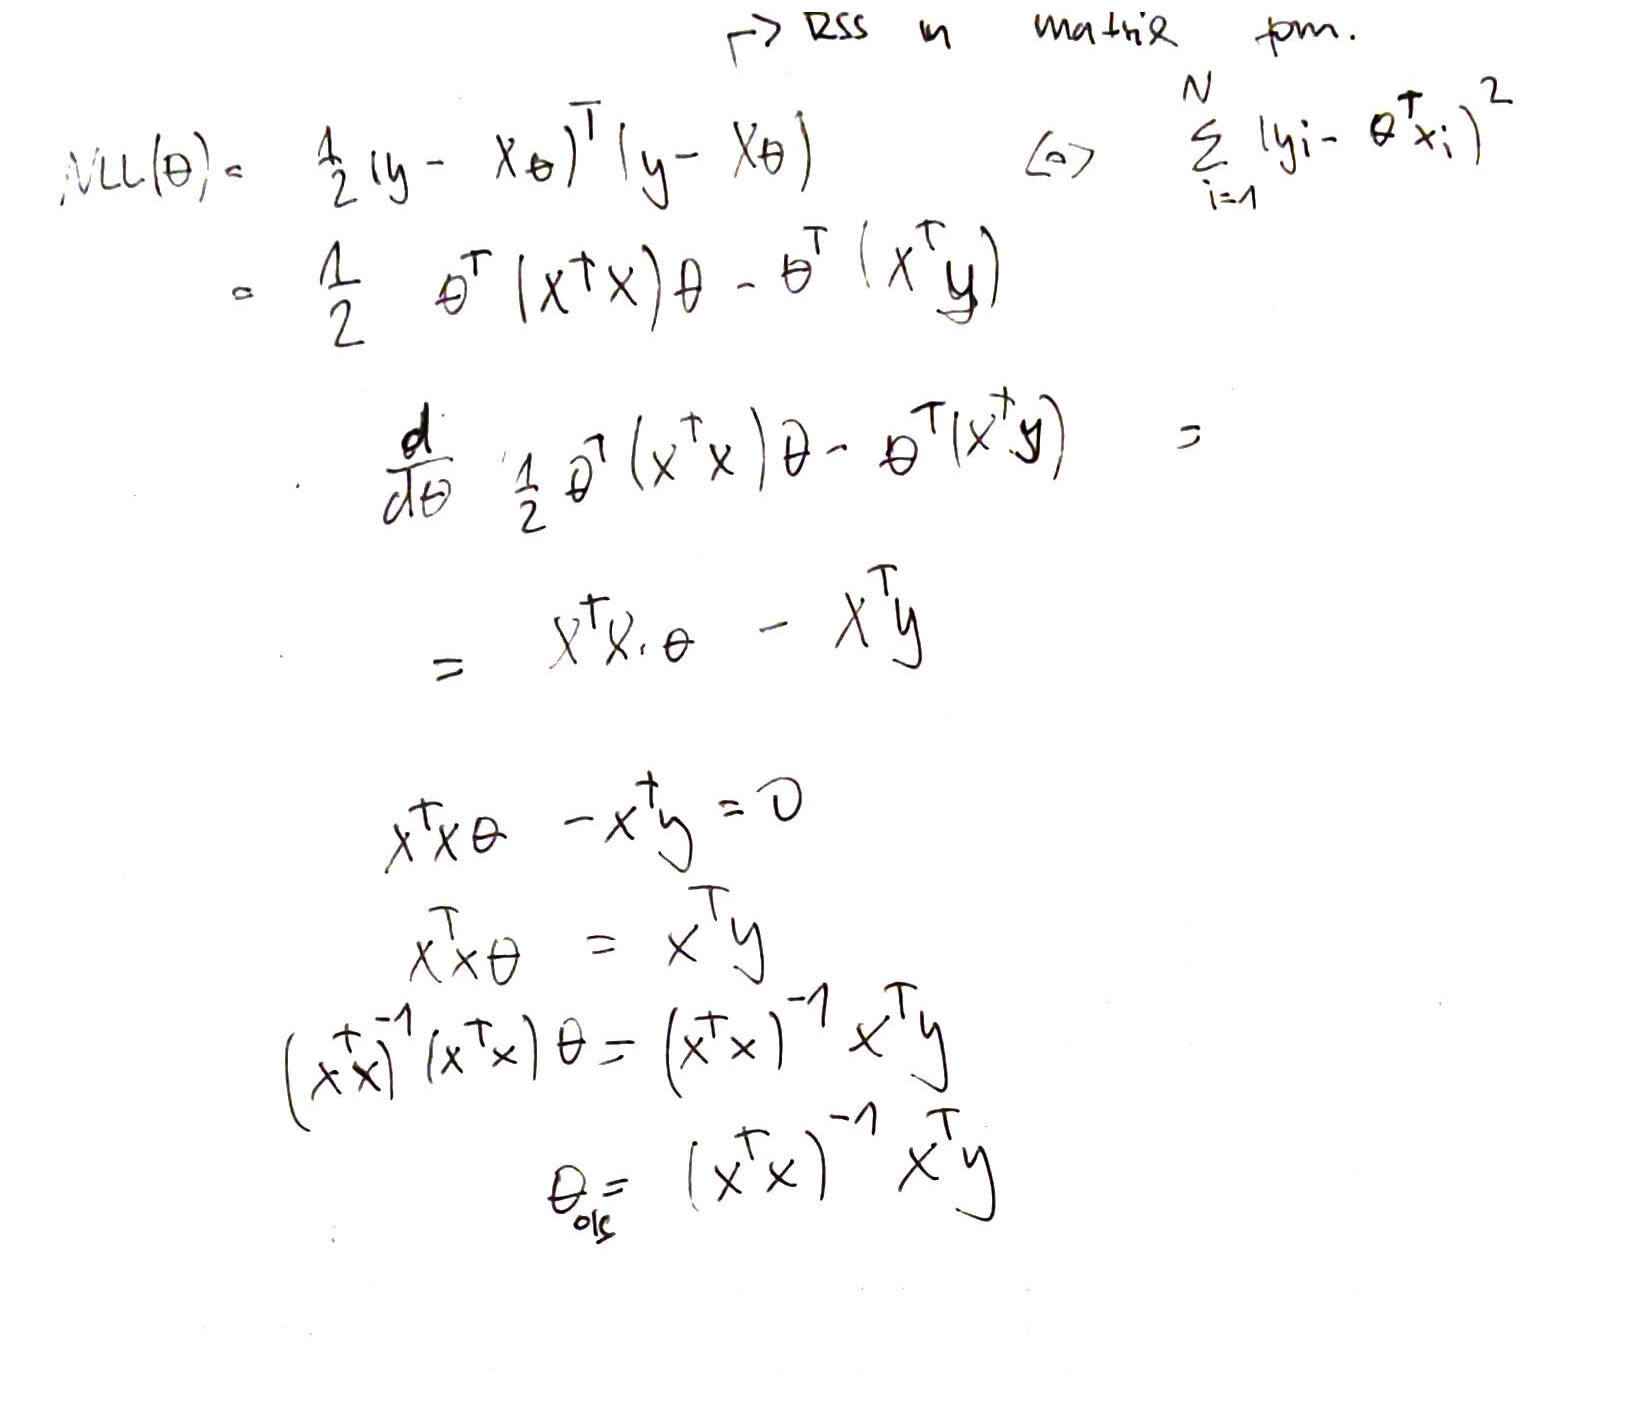 ↱> RSS in matrix form.
NLL(θ) = 1/2 (y - Xθ)^T (y - Xθ) <=> Σ_{i=1}^{N} (yi - θ^T xi)^2
= 1/2 θ^T (X^T X) θ - θ^T (X^T y)
d/dθ 1/2 θ^T (X^T X) θ - θ^T (X^T y) =
= X^T X · θ - X^T y
X^T X θ - X^T y = 0
X^T X θ = X^T y
(X^T X)^-1 (X^T X) θ = (X^T X)^-1 X^T y
θ_ols = (X^T X)^-1 X^T y